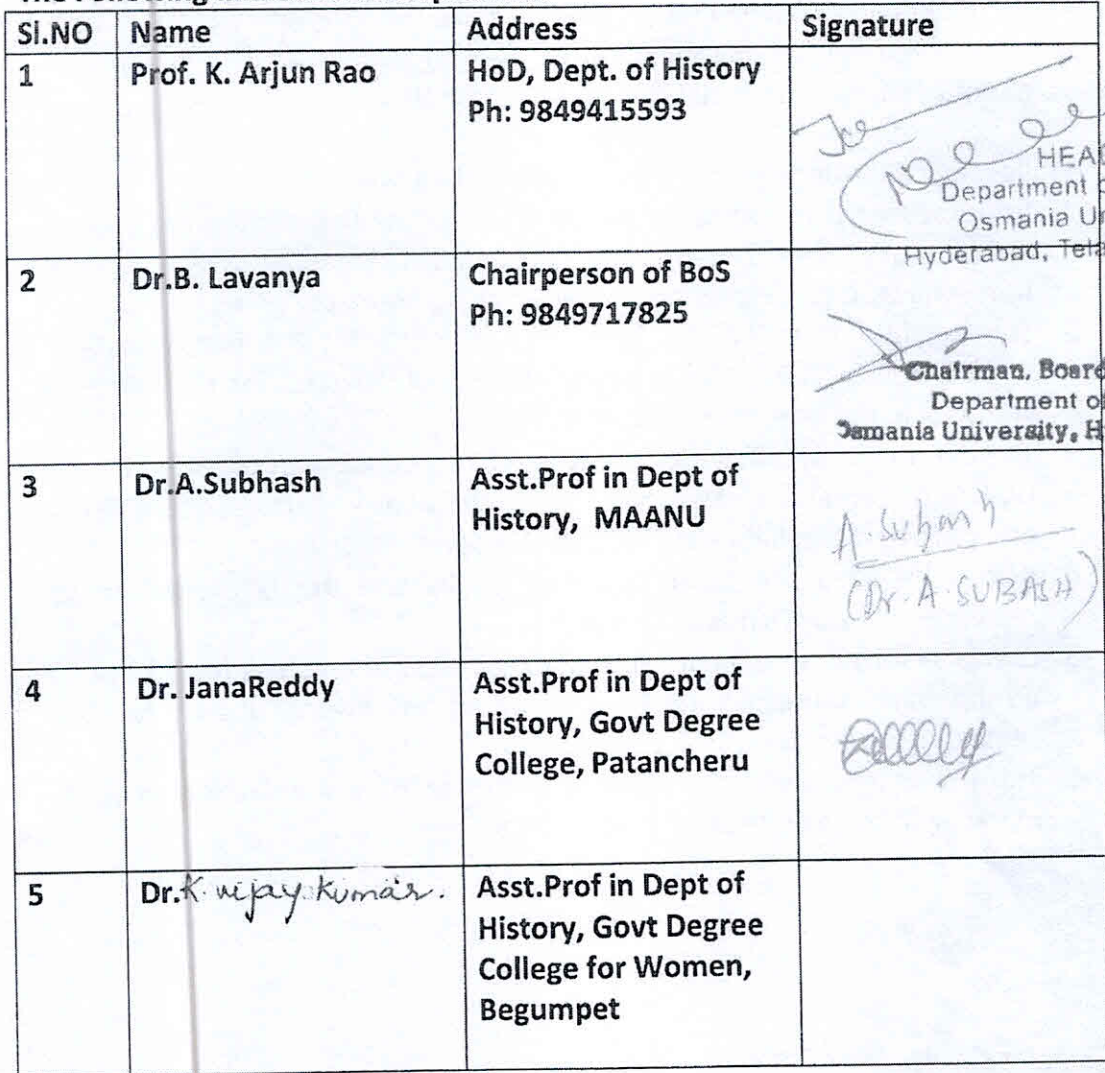 Sl.NO Name Address Signature
1 Prof. K. Arjun Rao HoD, Dept. of History
Ph: 9849415593
HEA
Department
Osmania U
Hyderabad, Tela
2 Dr.B. Lavanya Chairperson of BoS
Ph: 9849717825
Chairman, Board
Department o
Osmania University, H
3 Dr.A.Subhash Asst.Prof in Dept of
History, MAANU
A. Subhash
(Dr. A. SUBASH)
4 Dr. JanaReddy Asst.Prof in Dept of
History, Govt Degree
College, Patancheru
5 Dr.K. vijay kumar. Asst.Prof in Dept of
History, Govt Degree
College for Women,
Begumpet